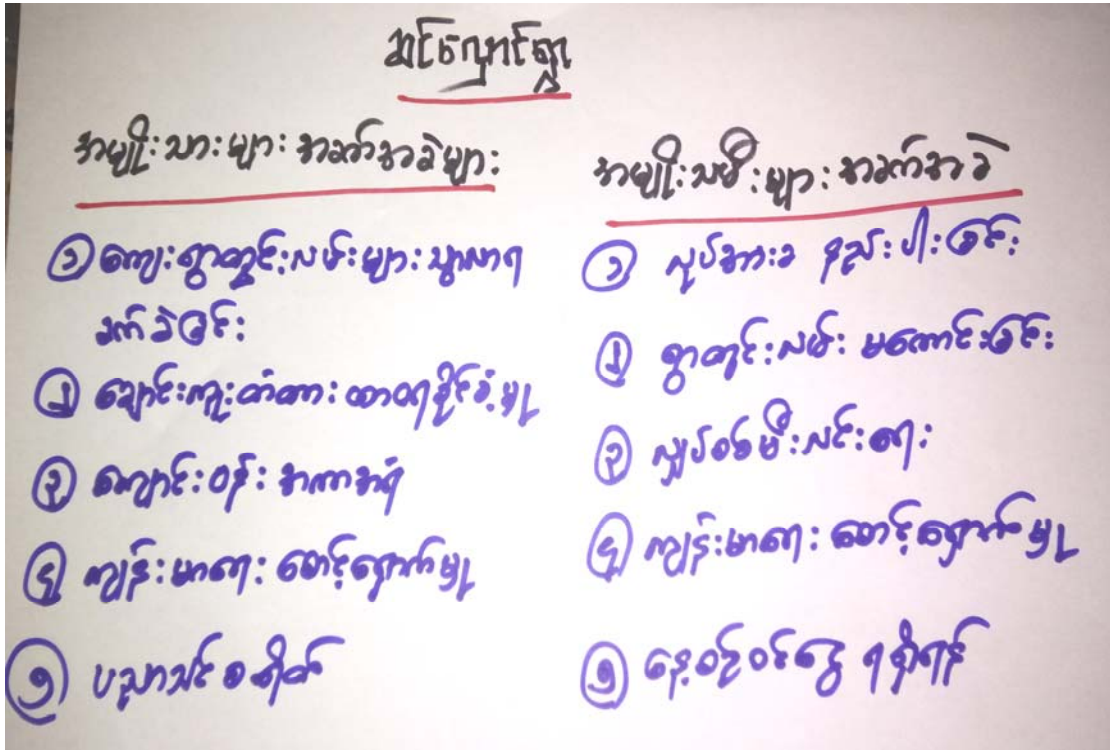 ဆင်လျှောင်ရွာ
အမျိုးသားများ အခက်အခဲများ
၁ ကျေးရွာတွင်းလမ်းများသွားလာရ
ခက်ခဲခြင်း
၂ ချောင်းကူးတံတား ထာဝရခိုင်ခံ့မှု
၃ ကျောင်းဝန်း အကာအရံ
၄ ကျန်းမာရေး စောင့်ရှောက်မှု
၅ ပညာသင်စရိတ်
အမျိုးသမီးများ အခက်အခဲ
၁ လုပ်အားခ နည်းပါးခြင်း
၂ ရွာတွင်းလမ်း မကောင်းခြင်း
၃ လျှပ်စစ်မီးလင်းရေး
၄ ကျန်းမာရေး စောင့်ရှောက်မှု
၅ နေ့စဉ်ဝင်ငွေ ရရှိရန်